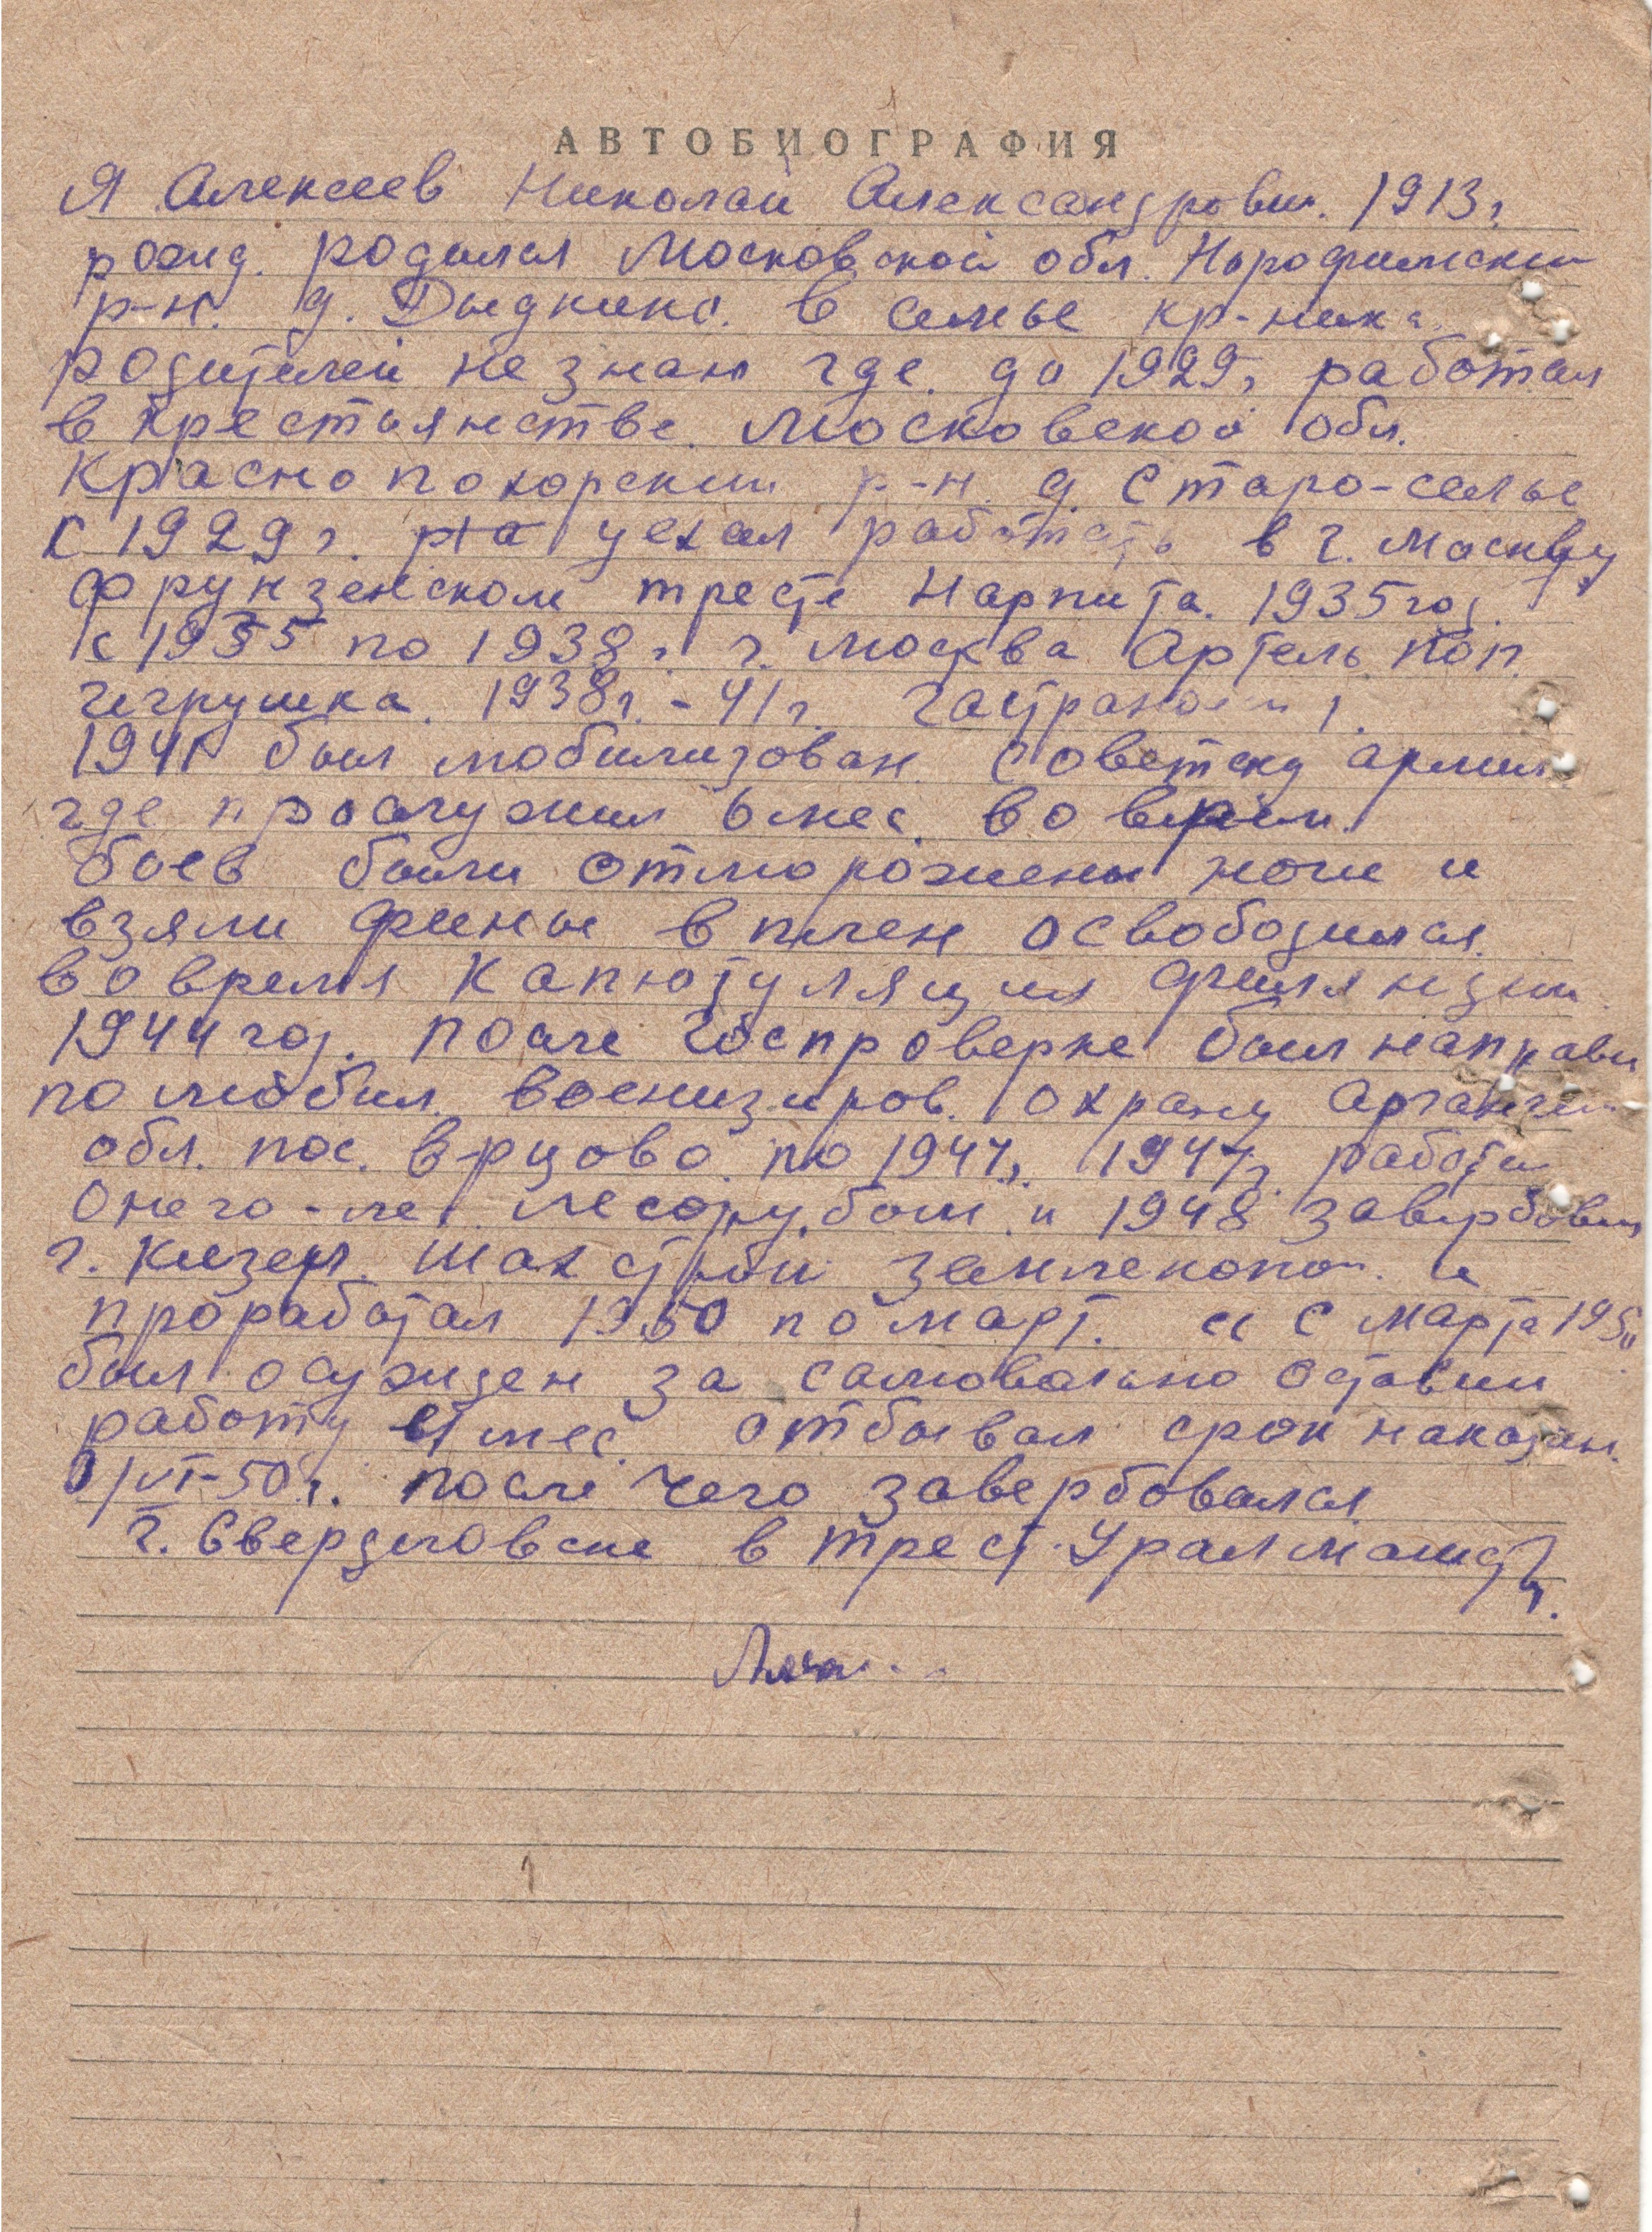 АВТОБИОГРАФИЯ
Я Алексеев Николай Александрович. 1913 г.
рожд. родился Московской обл. Нарофиминский
р-н. д. Дыдкино. в семье кр-ника.
родителей не знаю где. до 1929 г. работал
в крестьянстве. Московской обл.
Краснопахорский р-н. д Старо-селье
с 1929 г. уехал работать в г. Москву
Фрунзенском тресте Нарпита. 1935 год.
с 1935 по 1938 г. г. Москва Артель
игрушка. 1938 г. - 41 г. Гастраном 1.
1941 был мобилизован. Советску армию
где прослужил 6 мес. во время
боев были отморожены ноги и
взяли фины в плен освободился.
во время Капютуляция Финляндии
1944 год. после Госпроверке был направ
по мобил. военизиров. охрану Арханге
обл. пос. по 1947 г. 1947 г. работал
Онего-ле лесорубом и 1948 завербовался
г. Кизел. шахстрой землекопом. и
проработал 1950 по март. и с марта 1950
был осужден за самовольно оставил
работу 4 мес. отбывал срок наказан.
/VI-50 г. после чего завербовался
г. Свердловске в трест. Уралмаш